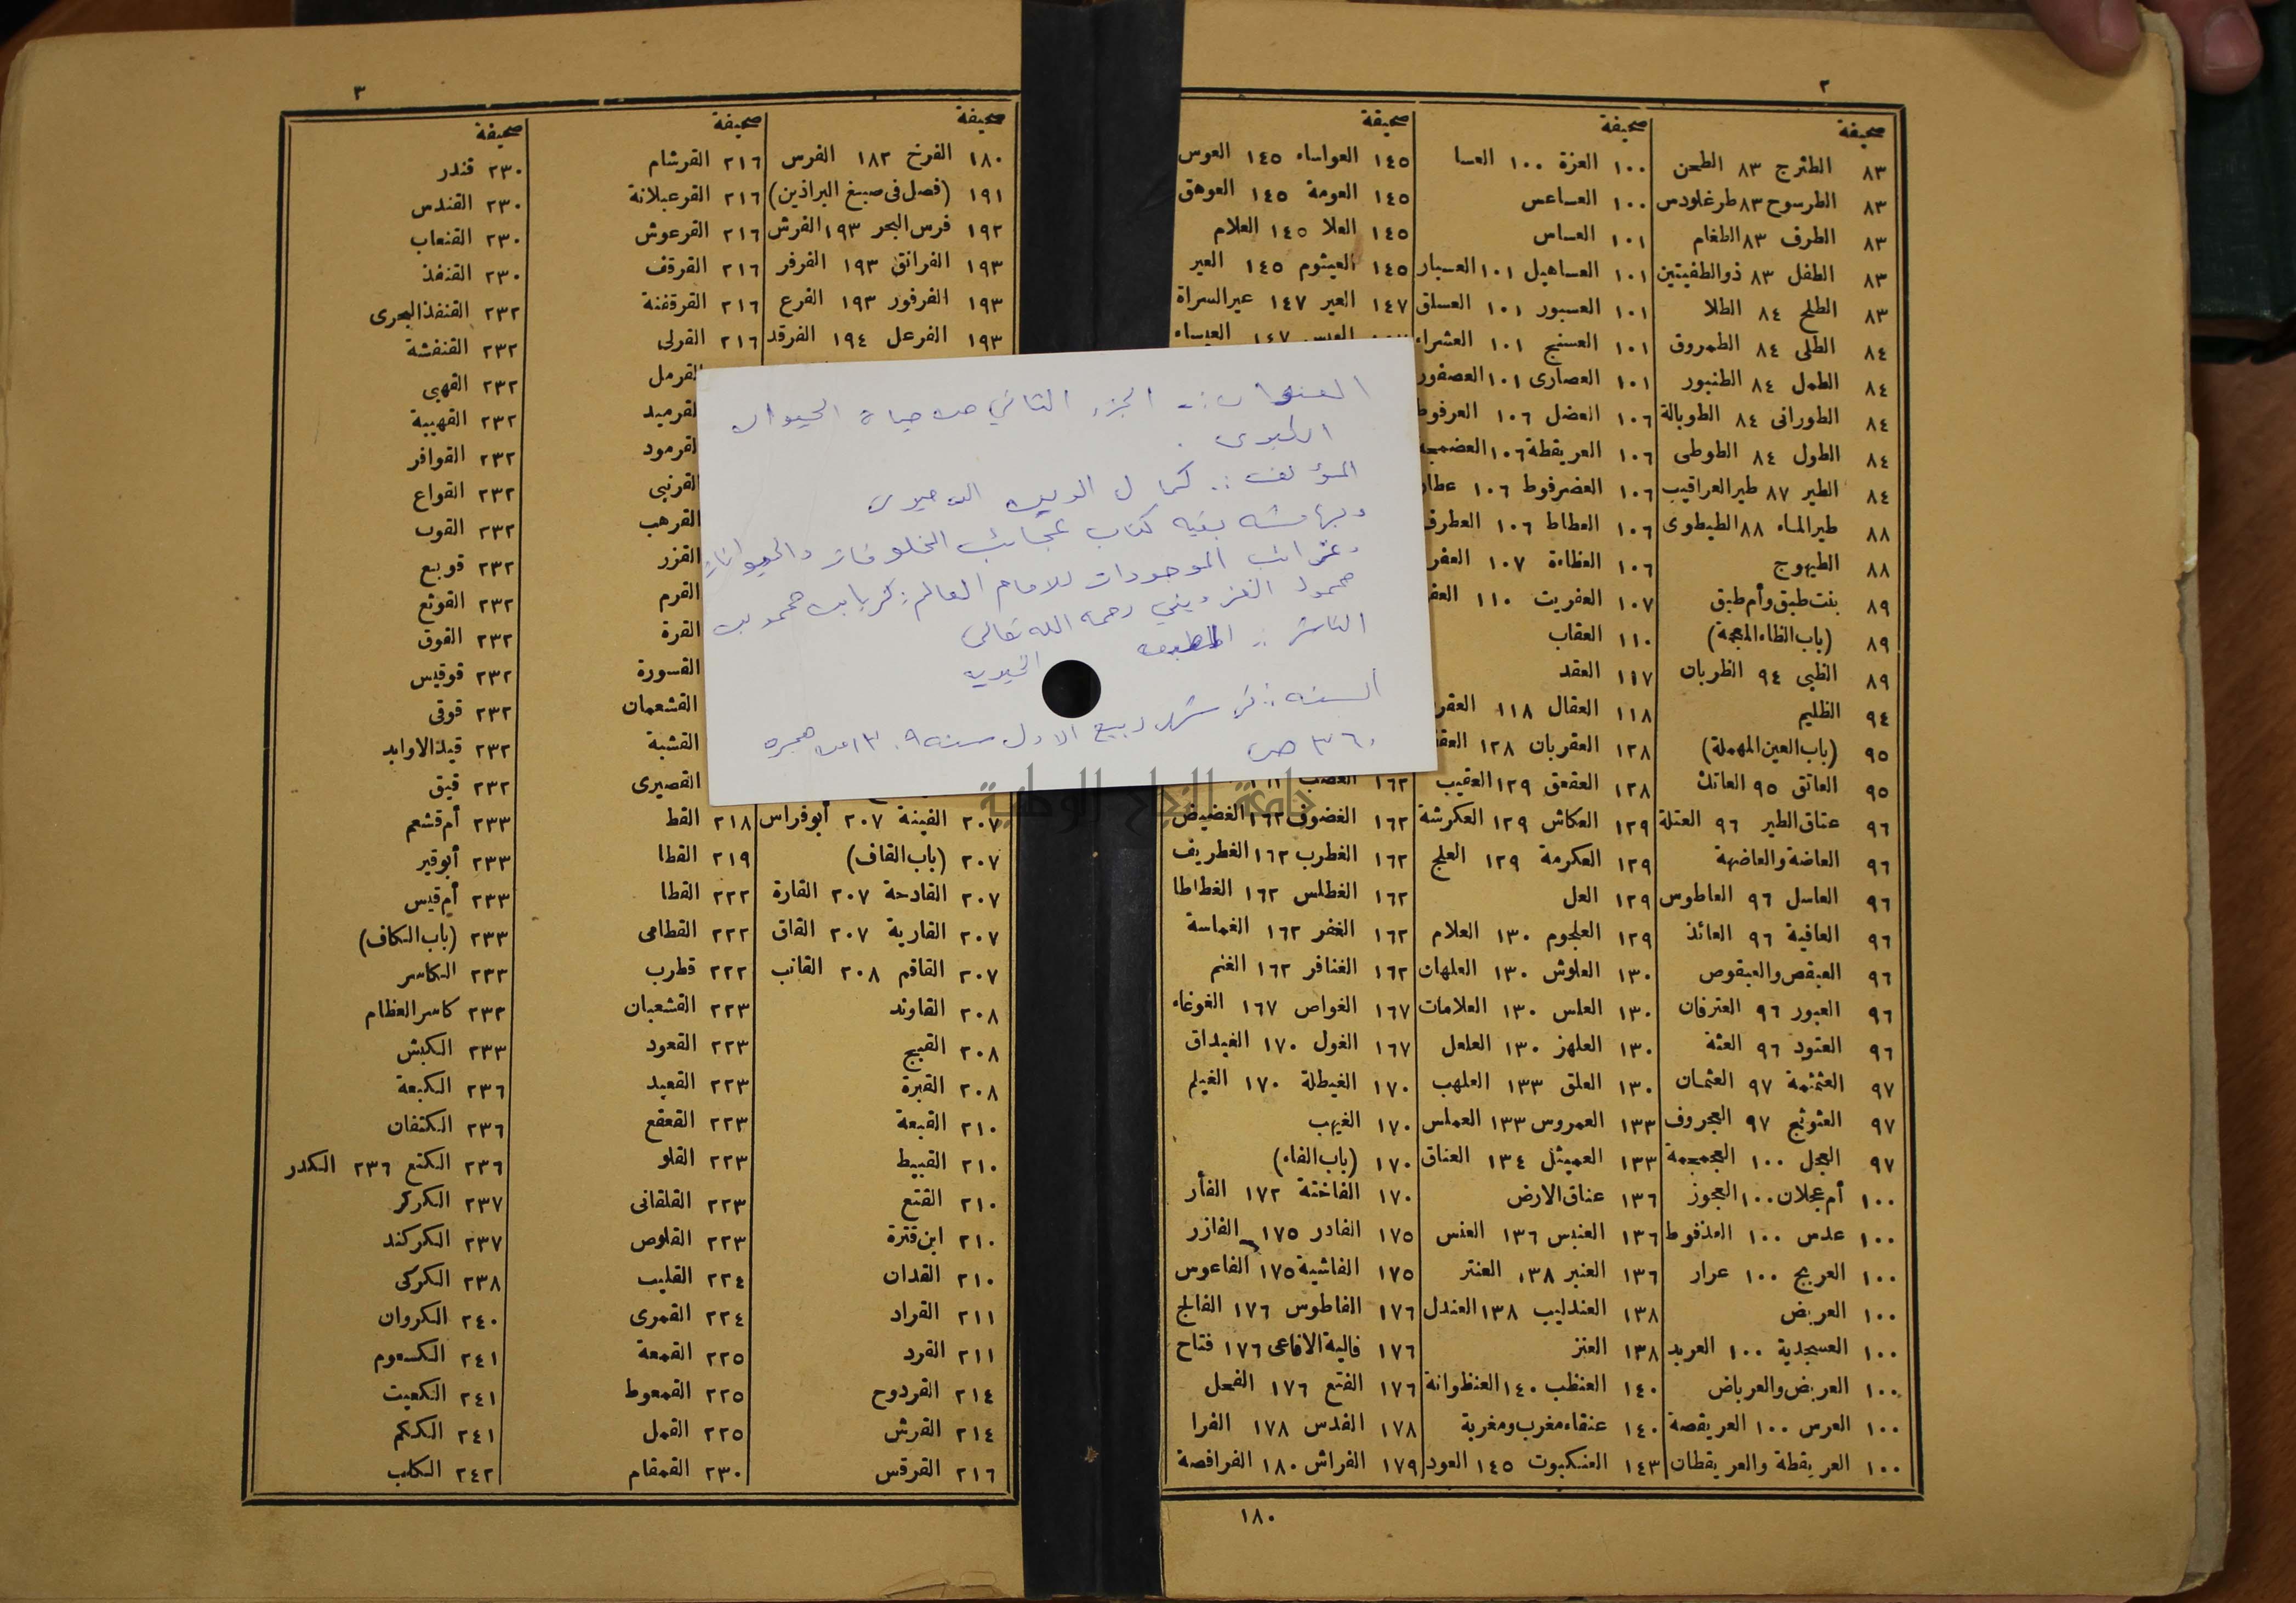 ٢
صحيفة
٨٣ الطثرج ٨٣ الطحن
٨٣ الطرسوح ٨٣ طرغلودس
٨٣ الطرف ٨٣ الطغام
٨٣ الطفل ٨٣ ذوالطفيتين
٨٣ الطلح ٨٤ الطلا
٨٤ الطلى ٨٤ الطمروق
٨٤ الطمل ٨٤ الطنبور
٨٤ الطورانى ٨٤ الطوبالة
٨٤ الطول ٨٤ الطوطى
٨٤ الطير ٨٧ طيرالعراقيب
٨٨ طيرالماء ٨٨ الطيطوى
٨٨ الطيهوج
٨٩ بنت طبق وأم طبق
٨٩ (باب الظاء المعجمة)
٨٩ الظبى ٩٤ الظربان
٩٤ الظليم
٩٥ (باب العين المهملة)
٩٥ العاتق ٩٥ العاتك
٩٦ عتاق الطير ٩٦ العتلة
٩٦ العاضة والعاضهة
٩٦ العاسل ٩٦ العاطوس
٩٦ العافية ٩٦ العائذ
٩٦ العبقص والعبقوص
٩٦ العبور ٩٦ العترفان
٩٦ العتود ٩٦ العثة
٩٧ العثمثمة ٩٧ العثمان
٩٧ العثوثج ٩٧ العجروف
٩٧ العجل ١٠٠ العجمجمة
١٠٠ أم عجلان ١٠٠ العجوز
١٠٠ عدس ١٠٠ العذفوط
١٠٠ العربج ١٠٠ عرار
١٠٠ العربض
١٠٠ العسجدية ١٠٠ العربد
١٠٠ العربض والعرباض
١٠٠ العرس ١٠٠ العريقصة
١٠٠ العريقطة والعريقطان
صحيفة
١٠٠ العزة ١٠٠ العسا
١٠٠ العساعس
١٠١ العساس
١٠١ العساهيل ١٠١ العسبار
١٠١ العسبور ١٠١ العسلق
١٠١ العسنج ١٠١ العشراء
١٠١ العصارى ١٠١ العصفور
١٠٦ العضل ١٠٦ العرفوط
١٠٦ العريقطة ١٠٦ العضمجة
١٠٦ العضرفوط ١٠٦ عطار
١٠٦ العطاط ١٠٦ العطرف
١٠٦ العظاءة ١٠٧ العفر
١٠٧ العفريت ١١٠ العفو
١١٠ العقاب
١١٧ العقد
١١٨ العقال ١١٨ العقرب
١٢٨ العقربان ١٢٨
١٢٨ العقعق ١٢٩ العقيب
١٢٩ العكاش ١٢٩ العكرشة
١٢٩ العكرمة ١٢٩ العلج
١٢٩ العل
١٢٩ العلجوم ١٣٠ العلام
١٣٠ العلوش ١٣٠ العلهات
١٣٠ العلس ١٣٠ العلامات
١٣٠ العلهز ١٣٠ العلعل
١٣٠ العلق ١٣٣ العلهب
١٣٣ العمروس ١٣٣ العملس
١٣٣ العميثل ١٣٤ العناق
١٣٦ عناق الارض
١٣٦ العنبس ١٣٦ العنس
١٣٦ العنبر ١٣٨ العنتر
١٣٨ العندليب ١٣٨ العندل
١٣٨ العنز
١٤٠ العنظب ١٤٠ العنظوانة
١٤٠ عنقاء مغرب ومغربة
١٤٣ العنكبوت ١٤٥ العود
صحيفة
١٤٥ العواساء ١٤٥ العوس
١٤٥ العومة ١٤٥ العوهق
١٤٥ العلا ١٤٥ العلام
١٤٥ العيثوم ١٤٥ العير
١٤٧ العير ١٤٧ عيرالسراة
العيس ١٤٧ العيساء
١٦٢ الغضب
١٦٢ الغضوف ١٦٢ الغضيض
١٦٢ الغطرب ١٦٢ الغطريف
١٦٢ الغطلس ١٦٢ الغطاطا
١٦٢ الغفر ١٦٢ الغماسة
١٦٢ الغنافر ١٦٢ الغنم
١٦٧ الغواص ١٦٧ الغوغاء
١٦٧ الغول ١٧٠ الغيداق
١٧٠ الغيطلة ١٧٠ الغيلم
١٧٠ الغيهب
١٧٠ (باب الفاء)
١٧٠ الفاختة ١٧٢ الفأر
١٧٥ الفادر ١٧٥ الفازر
١٧٥ الفاشية ١٧٥ الفاعوس
١٧٦ الفاطوس ١٧٦ الفالج
١٧٦ فالية الافاعى ١٧٦ فتاح
١٧٦ الفتع ١٧٦ الفحل
١٧٨ الفدس ١٧٨ الفرا
١٧٩ الفراش ١٨٠ الفرافصة
١٨٠
٣
صحيفة
١٨٠ الفرخ ١٨٢ الفرس
١٩١ (فصل فى صبيغ البراذين)
١٩٢ فرس البحر ١٩٣ الفرش
١٩٣ الفرانق ١٩٣ الفرفر
١٩٣ الفرفور ١٩٣ الفرع
١٩٣ الفرعل ١٩٤ الفرقد
٢٠٧ الفينة ٢٠٧ أبوفراس
٢٠٧ (باب القاف)
٢٠٧ القادحة ٢٠٧ القارة
٢٠٧ القارية ٢٠٧ القاق
٢٠٧ القاقم ٢٠٨ القانب
٢٠٨ القاوند
٢٠٨ القبج
٢٠٨ القبرة
٢١٠ القبعة
٢١٠ القبيط
٢١٠ القتع
٢١٠ ابن قترة
٢١٠ القدان
٢١١ القراد
٢١١ القرد
٢١٤ القردوح
٢١٤ القرش
٢١٦ القرقس
صحيفة
٢١٦ القرشام
٢١٦ القرعبلانة
٢١٦ القرعوش
٢١٦ القرقف
٢١٦ القرقفنة
٢١٦ القرلى
القرمل
القرميد
القرمود
القرنبى
القرهب
القزر
القرم
القرة
القسورة
القشعمان
القشبة
القصيرى
٢١٨ القط
٢١٩ القطا
٢٢٢ القطا
٢٢٢ القطامى
٢٢٢ قطرب
٢٢٣ القشعبان
٢٢٣ القعود
٢٢٣ القعيد
٢٢٣ القعقع
٢٢٣ القلو
٢٢٣ القلقانى
٢٢٣ القلوص
٢٢٤ القليب
٢٢٤ القمرى
٢٢٥ القمعة
٢٢٥ القمعوط
٢٢٥ القمل
٢٣٠ القمقام
صحيفة
٢٣٠ قندر
٢٣٠ القندس
٢٣٠ القنعاب
٢٣٠ القنفذ
٢٣٢ القنفذ البحرى
٢٣٢ القنفشة
٢٣٢ القهبى
٢٣٢ القهيبة
٢٣٢ القوافر
٢٣٢ القواع
٢٣٢ القوب
٢٣٢ قوبع
٢٣٢ القوثع
٢٣٢ القوق
٢٣٢ قوقيس
٢٣٢ قوقى
٢٣٢ قيد الاوابد
٢٣٢ قيق
٢٣٣ أم قشعم
٢٣٣ أبوقير
٢٣٣ أم قيس
٢٣٣ (باب الكاف)
٢٣٣ الكاسر
٢٣٣ كاسر العظام
٢٣٣ الكبش
٢٣٦ الكبعة
٢٣٦ الكتفان
٢٣٦ الكتع ٢٣٦ الكدر
٢٣٧ الكركر
٢٣٧ الكركند
٢٣٨ الكركى
٢٤٠ الكروان
٢٤١ الكسعوم
٢٤١ الكعيت
٢٤١ الككم
٢٤٢ الكلب
العنوان :- الجزء الثاني من حياة الحيوان
الكبرى .
المؤلف :. كمال الدين الدميرى
وبهامشه بقيه كتاب عجائب المخلوقات والحيوانات
وغرائب الموجودات للامام العالم زكريا بن محمد بن
محمود القزويني رحمه الله تعالى
الناشر :- المطبعه الخيريه
السنه :. فى شهر ربيع الاول سنه ١٣٠٩ من هجره
٣٦٠ ص
جامعة النجاح الوطنية